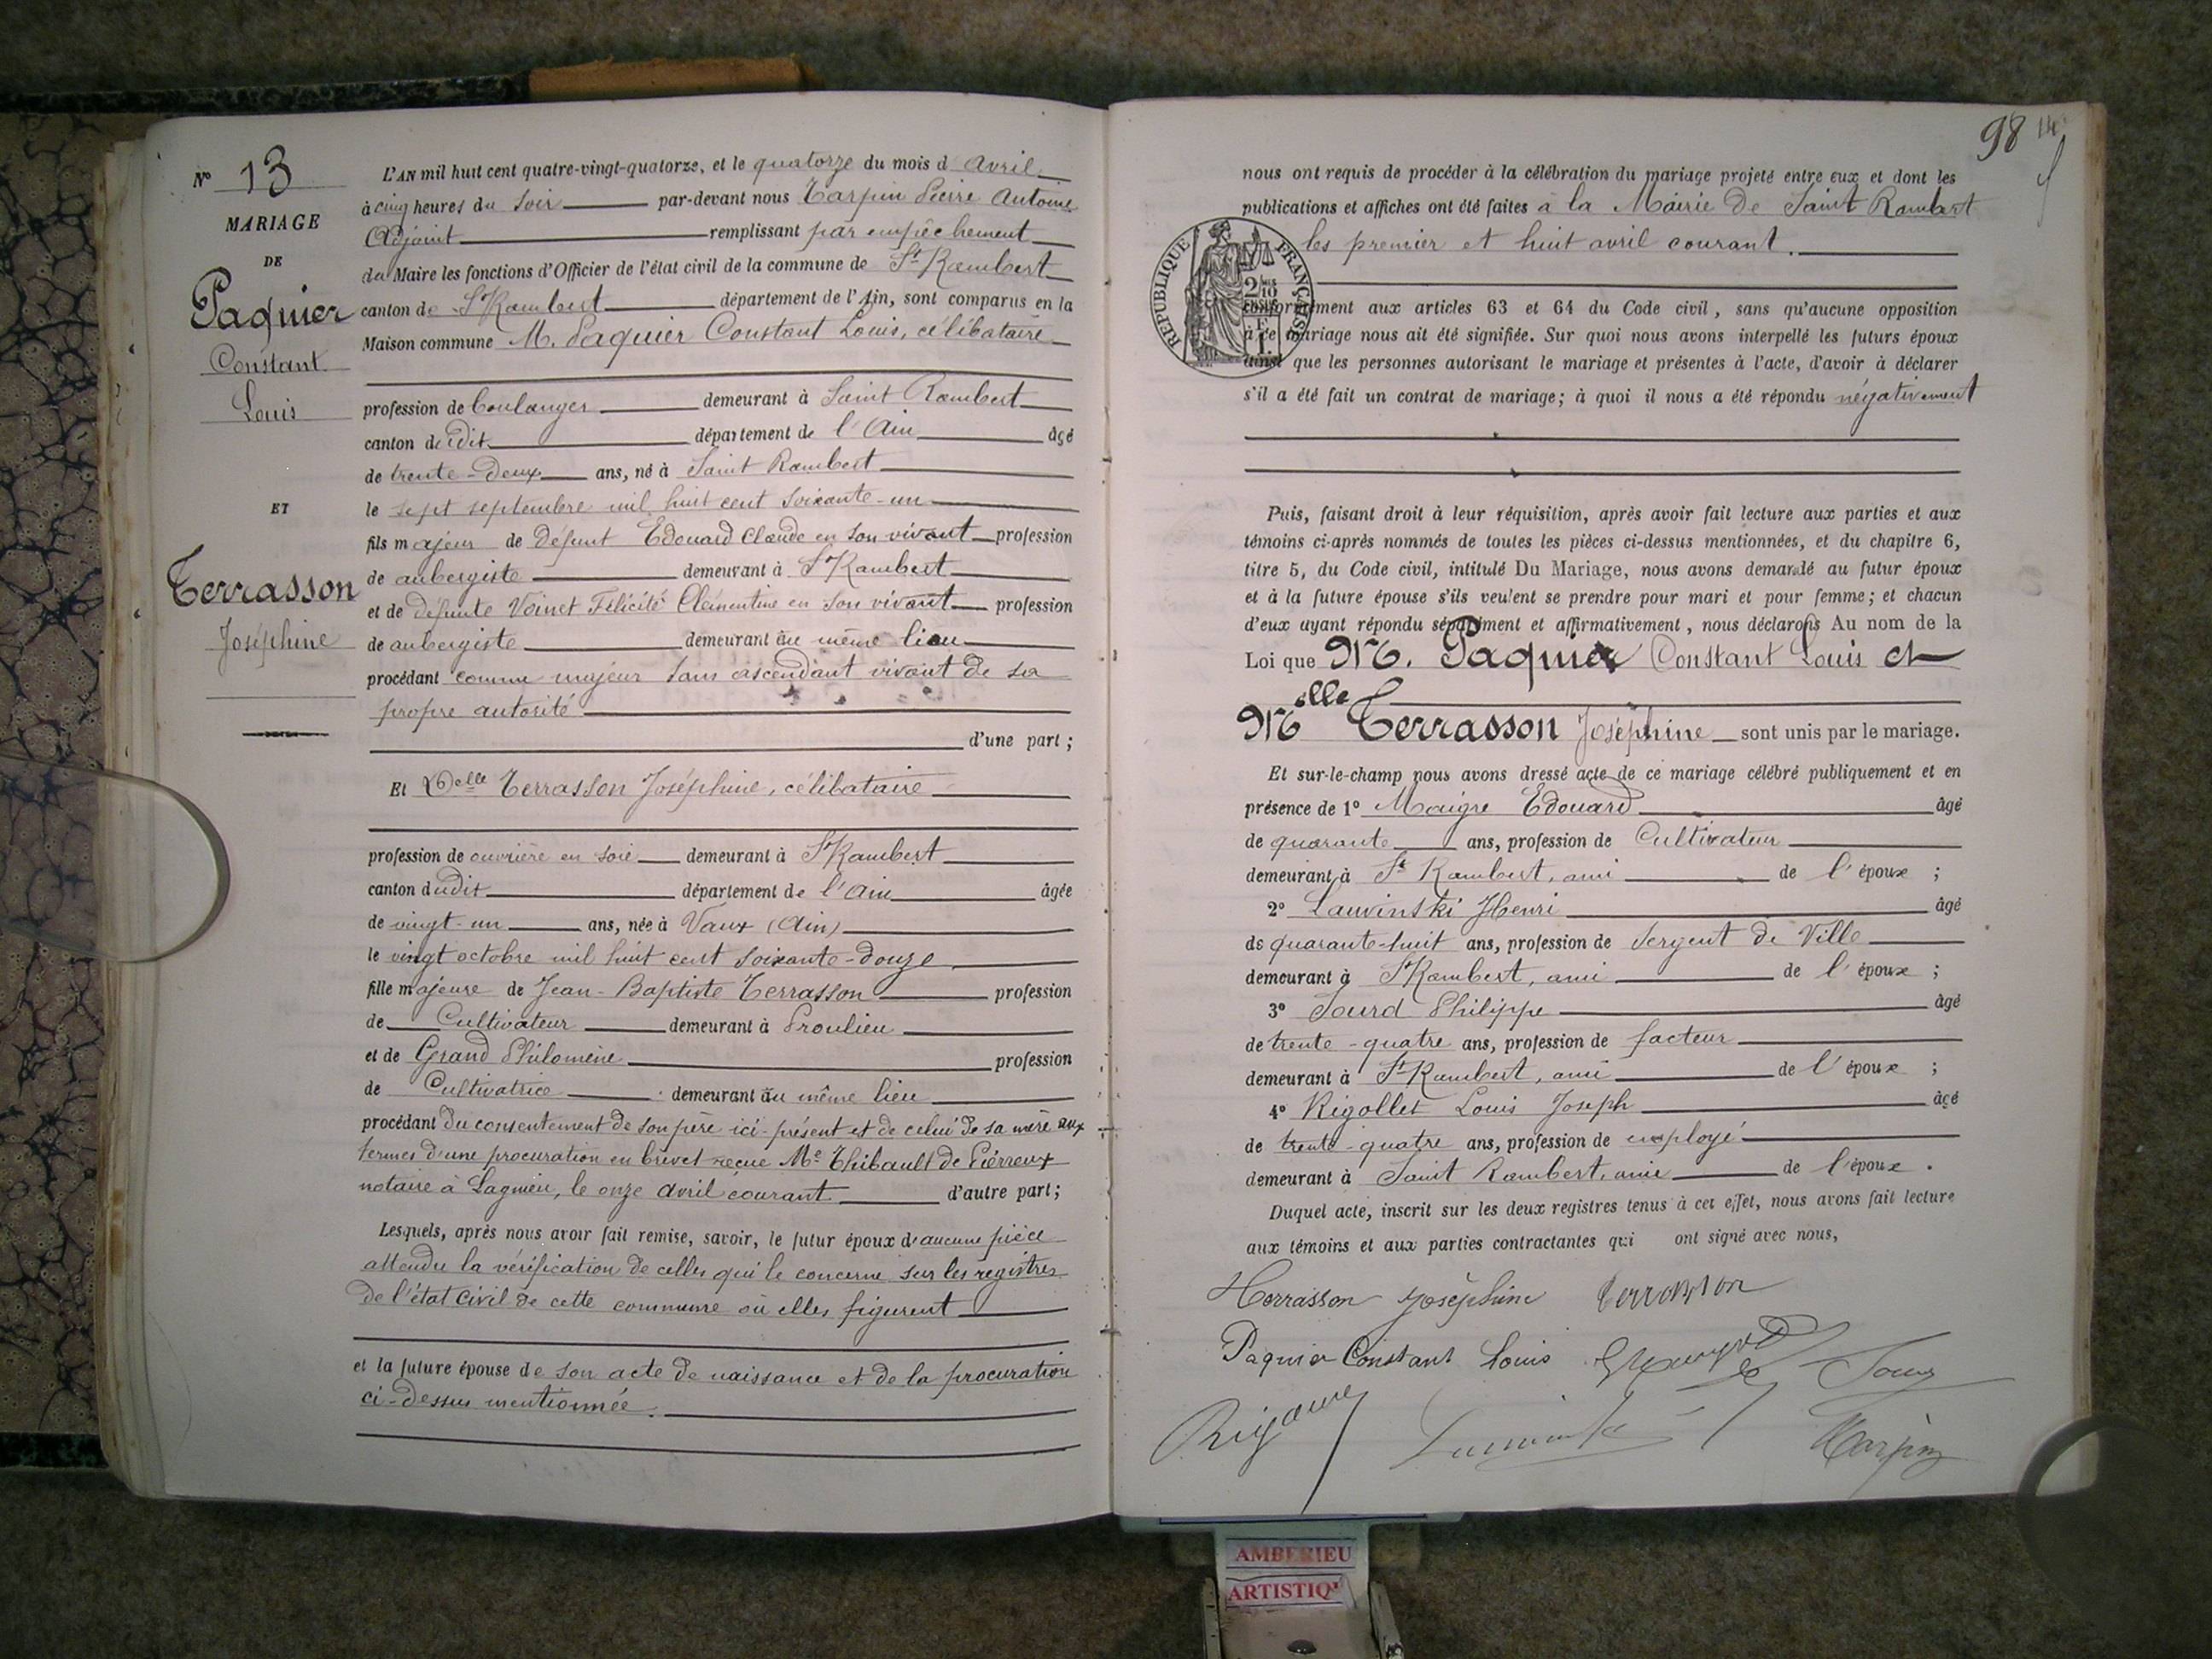 N° 13
MARIAGE
DE
Paquier
Constant
Louis
ET
Terrasson
Joséphine
L'AN mil huit cent quatre-vingt-quatorze, et le quatorze du mois d'avril
à cinq heures du soir par-devant nous Tarpin Pierre Antoine
Adjoint remplissant par empêchement
du Maire les fonctions d'Officier de l'état civil de la commune de St Rambert
canton de St Rambert département de l'Ain, sont comparus en la
Maison commune M. Paquier Constant Louis, célibataire
profession de boulanger demeurant à Saint Rambert
canton dudit département de l'Ain âgé
de trente-deux ans, né à Saint Rambert
le sept septembre mil huit cent soixante-un
fils majeur de défunt Edouard Claude en son vivant profession
de aubergiste demeurant à St Rambert
et de défunte Voinet Félicité Clémentine en son vivant profession
de aubergiste demeurant au même lieu
procédant comme majeur sans ascendant vivant de sa
propre autorité
d'une part ;
Et Delle Terrasson Joséphine, célibataire
profession de ouvrière en soie demeurant à St Rambert
canton dudit département de l'Ain âgée
de vingt-un ans, née à Vaux (Ain)
le vingt octobre mil huit cent soixante-douze
fille majeure de Jean-Baptiste Terrasson profession
de Cultivateur demeurant à Proulieu
et de Grand Philomène profession
de Cultivatrice demeurant au même lieu
procédant du consentement de son père ici-présent et de celui de sa mère aux
termes d'une procuration en brevet reçue Me Thibault de Pierreux
notaire à Lagnieu, le onze avril courant d'autre part ;
Lesquels, après nous avoir fait remise, savoir, le futur époux d'aucune pièce
attendu la vérification de celles qui le concerne sur les registres
de l'état civil de cette commune où elles figurent
et la future épouse de son acte de naissance et de la procuration
ci-dessus mentionnée.
98
nous ont requis de procéder à la célébration du mariage projeté entre eux et dont les
publications et affiches ont été faites à la Mairie de Saint Rambert
les premier et huit avril courant.
REPUBLIQUE FRANÇAISE
conformément aux articles 63 et 64 du Code civil, sans qu'aucune opposition
à ce mariage nous ait été signifiée. Sur quoi nous avons interpellé les futurs époux
ainsi que les personnes autorisant le mariage et présentes à l'acte, d'avoir à déclarer
s'il a été fait un contrat de mariage; à quoi il nous a été répondu négativement
Puis, faisant droit à leur réquisition, après avoir fait lecture aux parties et aux
témoins ci-après nommés de toutes les pièces ci-dessus mentionnées, et du chapitre 6,
titre 5, du Code civil, intitulé Du Mariage, nous avons demandé au futur époux
et à la future épouse s'ils veulent se prendre pour mari et pour femme; et chacun
d'eux ayant répondu séparément et affirmativement, nous déclarons Au nom de la
Loi que M. Paquier Constant Louis et
Melle Terrasson Joséphine sont unis par le mariage.
Et sur-le-champ nous avons dressé acte de ce mariage célébré publiquement et en
présence de 1° Maigre Edouard âgé
de quarante ans, profession de Cultivateur
demeurant à St Rambert, ami de l'époux ;
2° Lauvinski Henri âgé
de quarante-huit ans, profession de Sergent de Ville
demeurant à St Rambert, ami de l'époux ;
3° Sourd Philippe âgé
de trente-quatre ans, profession de facteur
demeurant à St Rambert, ami de l'époux ;
4° Rigollet Louis Joseph âgé
de trente-quatre ans, profession de employé
demeurant à Saint Rambert, ami de l'époux.
Duquel acte, inscrit sur les deux registres tenus à cet effet, nous avons fait lecture
aux témoins et aux parties contractantes qui ont signé avec nous,
Terrasson Joséphine Terrasson
Paquier Constant Louis
Tarpin
AMBERIEU
ARTISTIQ